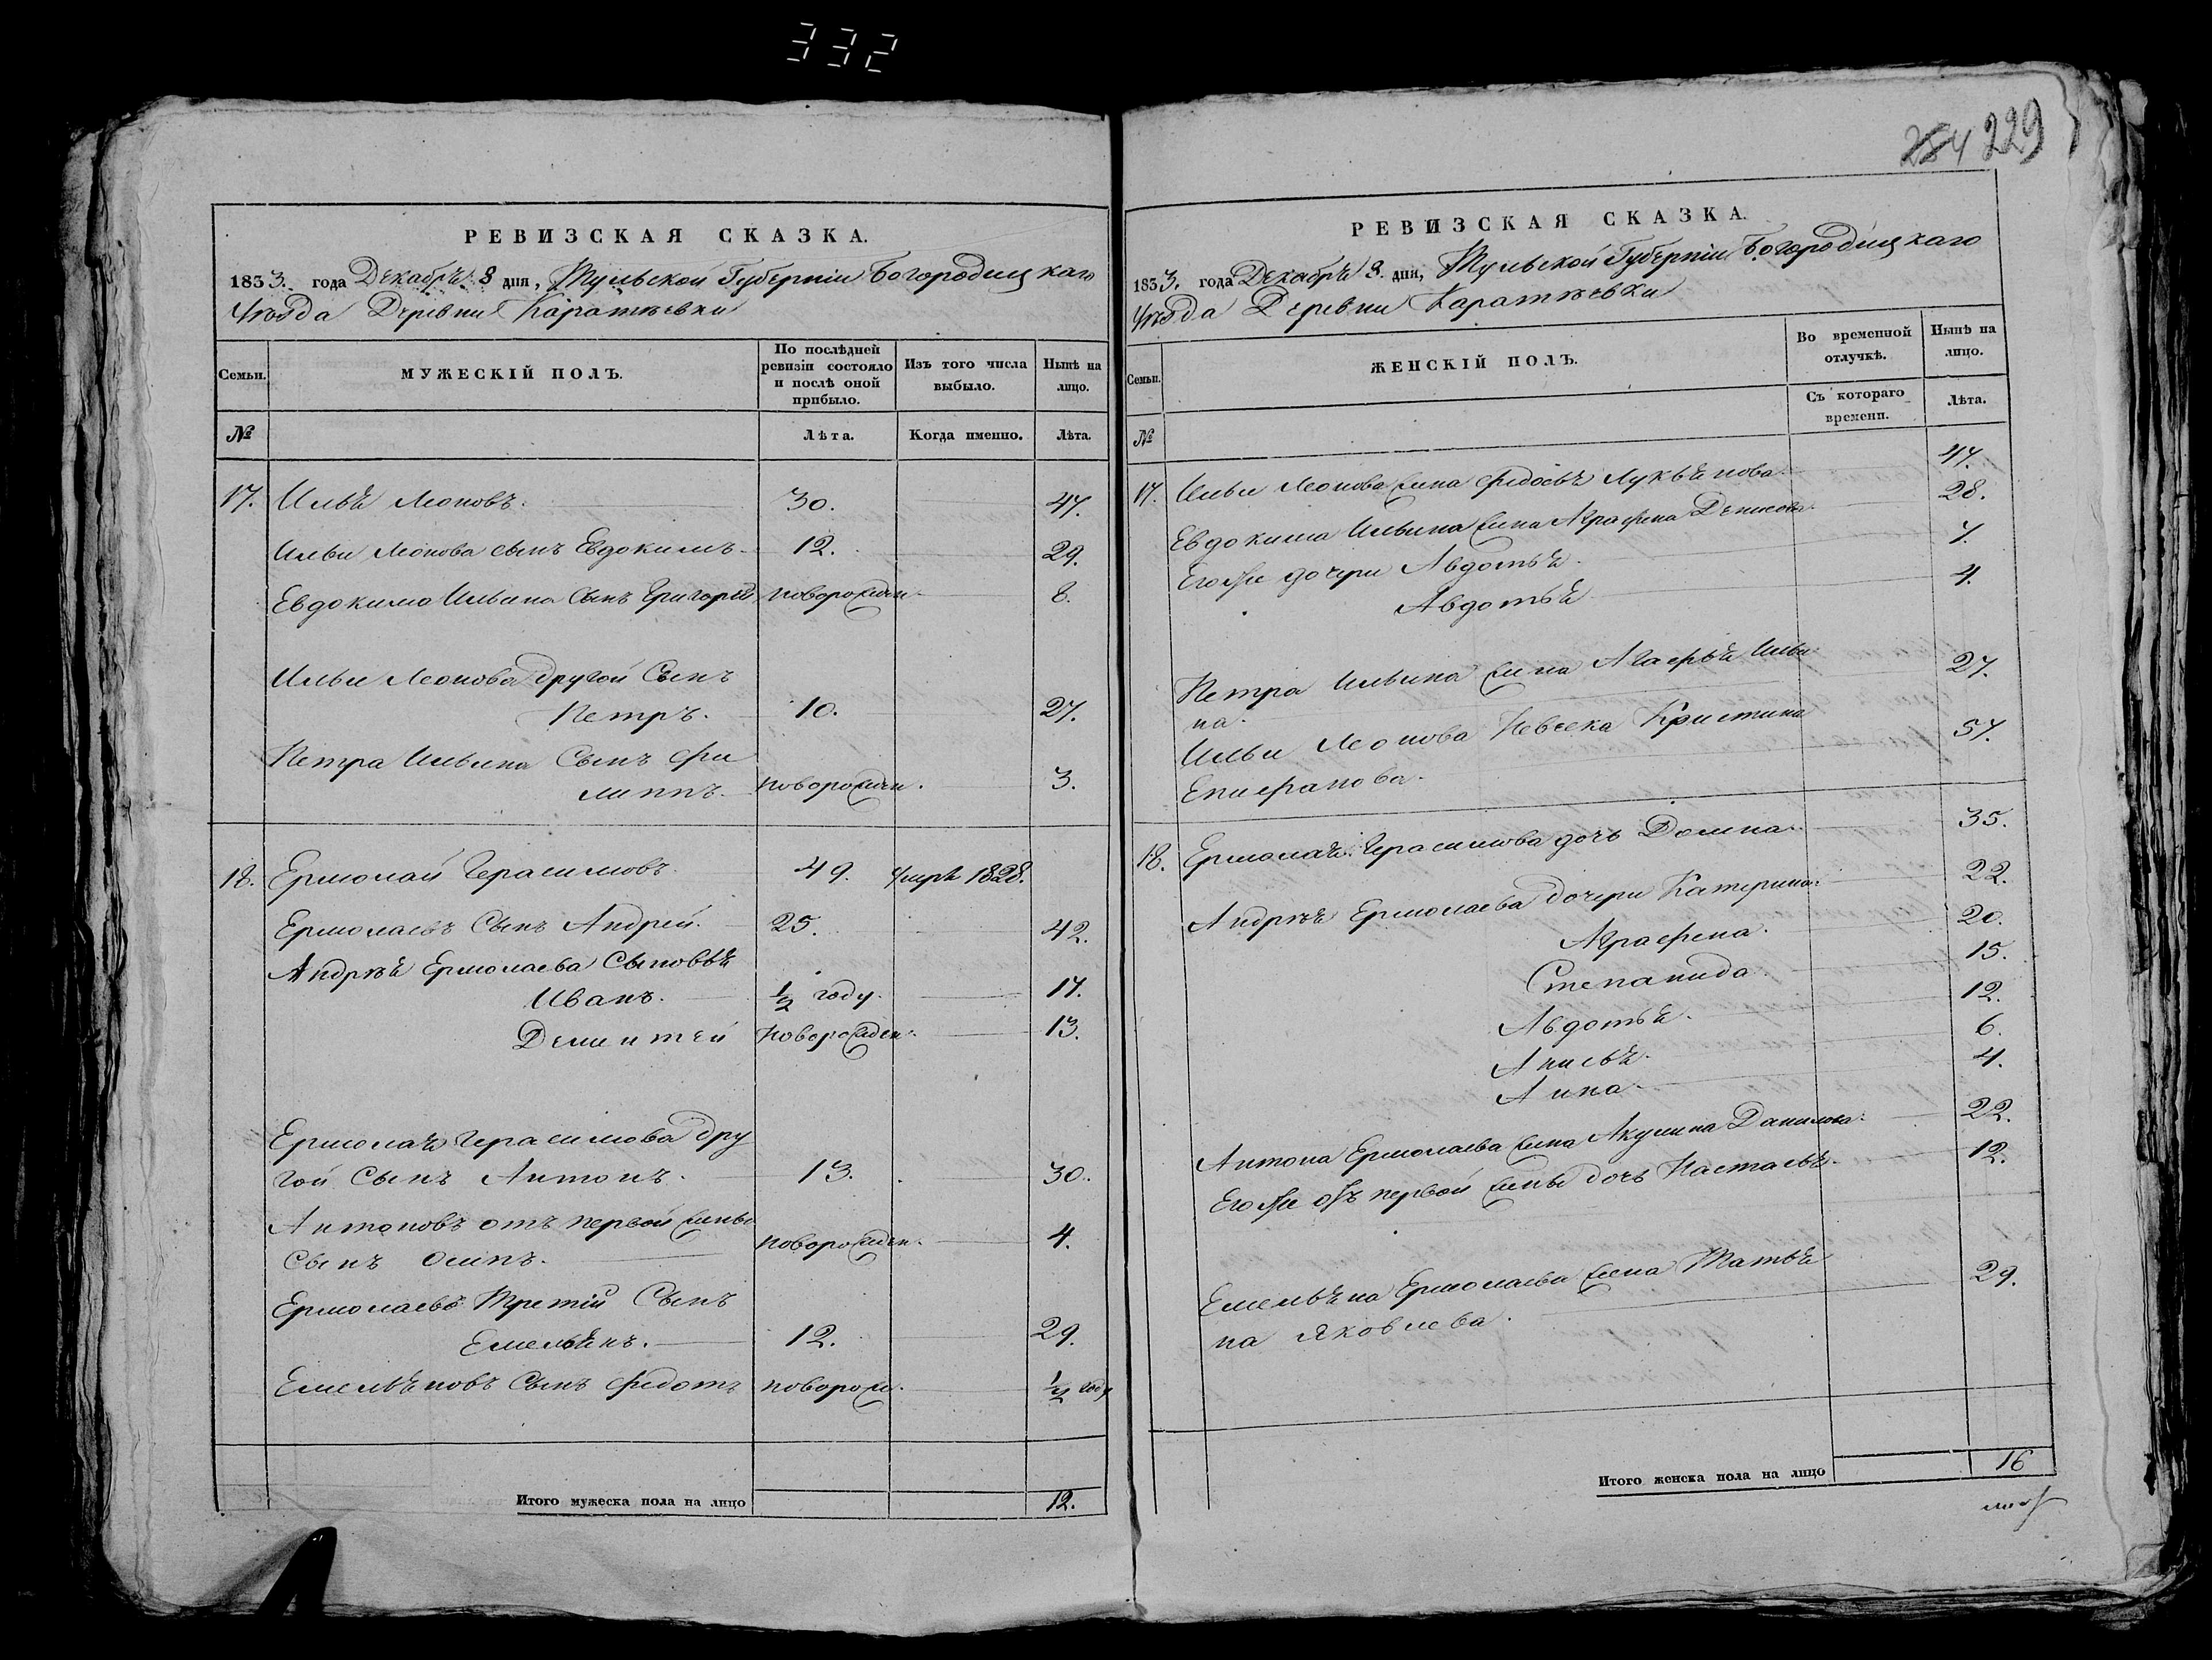 332
РЕВИЗСКАЯ СКАЗКА.
1833. года Декабря 8 дня, Тульской Губерніи Богородицкаго
Уѣзда Деревни Каратѣевки
Семьи.
МУЖЕСКІЙ ПОЛЪ.
По послѣдней ревизіи состояло и послѣ оной прибыло.
Изъ того числа выбыло.
Нынѣ на лицо.
№
Лѣта.
Когда именно.
Лѣта.
17. Илья Леоновъ. 30. 47.
Ильи Леонова сынъ Евдокимъ 12. 29.
Евдокима Ильина Сынъ Григорій новорожден 8.
Ильи Леонова другой Сынъ
Петръ. 10. 27.
Петра Ильина Сынъ Фи
липпъ. новорожден. 3.
18. Ермолай Герасимовъ. 49. умре 1828.
Ермолаевъ Сынъ Андрей. 25. 42.
Андрѣя Ермолаева Сыновья
Иванъ. 1/2 году. 17.
Дементей новорожден. 13.
Ермолая Герасимова дру
гой Сынъ Антонъ. 13. 30.
Антоновъ отъ первой жены
Сынъ Осипъ. новорожден. 4.
Ермолаевъ Третій Сынъ
Емельянъ. 12. 29.
Емельяновъ Сынъ Федотъ новорож. 1/2 году
Итого мужеска пола на лицо 12.
254 229
РЕВИЗСКАЯ СКАЗКА.
1833. года Декабря 8. дня, Тульской Губерніи Богородицкаго
Уѣзда Деревни Каратѣевки
Семьи.
ЖЕНСКІЙ ПОЛЪ.
Во временной отлучкѣ.
Нынѣ на лицо.
№
Съ котораго времени.
Лѣта.
17. Ильи Леонова жена Федосья Лукьянова. 47.
Евдокима Ильина жена Аграфена Денисова. 28.
Его же дочери Авдотья. 7.
Авдотья 4.
Петра Ильина жена Агафья Ильи
на. 27.
Ильи Леонова Невѣска Кристина
Епифанова. 57.
18. Ермолая Герасимова дочь Домна. 35.
Андрѣя Ермолаева дочери Катерина. 22.
Аграфена. 20.
Степанида. 15.
Авдотья. 12.
Анисья. 6.
Анна 4.
Антона Ермолаева жена Акулина Данилова. 22.
Его же отъ первой жены дочь Настасья. 12.
Емельяна Ермолаева жена Татья
на Яковлева. 29.
Итого женска пола на лицо 16